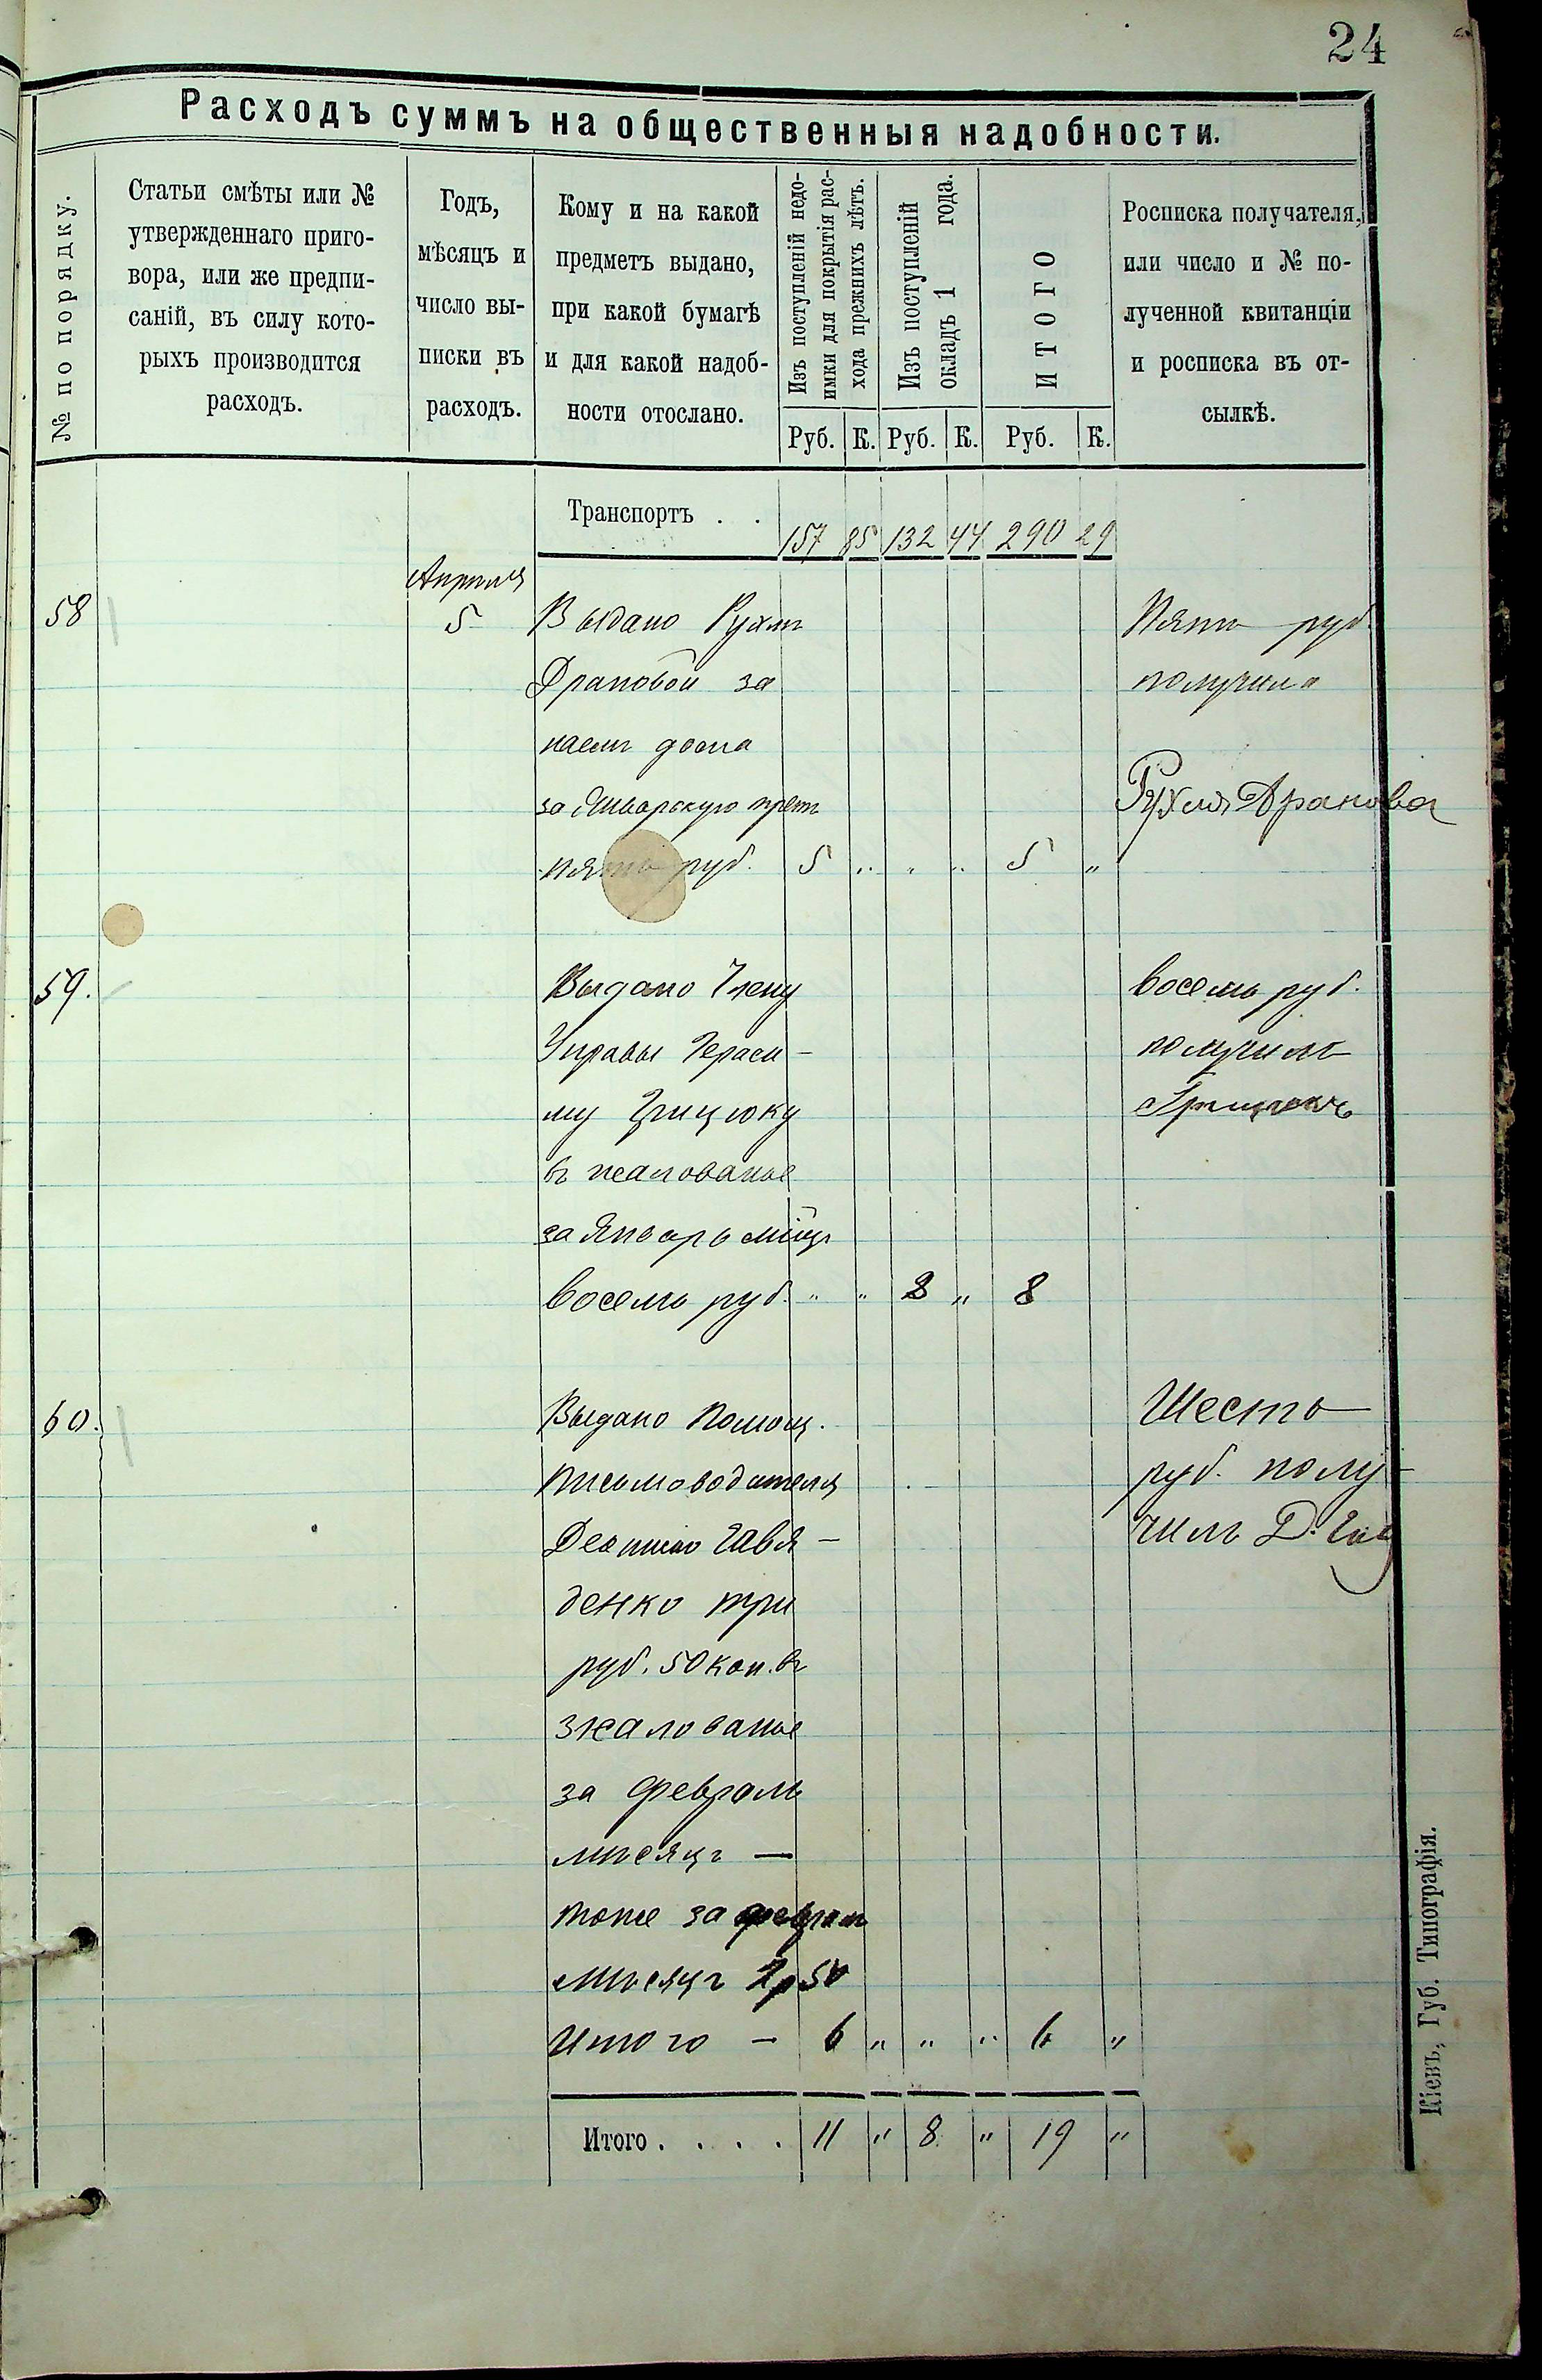 24
Расходъ суммъ на общественныя надобности.
№ по порядку.
Статьи смѣты или №
утвержденнаго приго-
вора, или же предпи-
саній, въ силу кото-
рыхъ производится
расходъ.
Годъ,
мѣсяцъ и
число вы-
писки въ
расходъ.
Кому и на какой
предметъ выдано,
при какой бумагѣ
и для какой надоб-
ности отослано.
Изъ поступленій недо-
имки для покрытія рас-
хода прежнихъ лѣтъ.
Изъ поступленій
окладъ 1 года.
ИТОГО
Росписка получателя,
или число и № по-
лученной квитанціи
и росписка въ от-
сылкѣ.
Руб. К. Руб. К. Руб. К.
Транспортъ . . 157 85 132 44 290 29
Апрѣля
58 5 Выдано Рухли Пять руб.
Драновой за получила
наемъ дома
за Январскую треть Рухля Арановa
пять руб. 5 „ „ „ 5 „
59. Выдано Члену восемь руб.
Управы Гераси- получилъ
му Грицюку Грицюкъ
въ жалованье
за Январь мцъ
восемь руб. „ „ 8 „ 8
60. Выдано Помощ. Шесть
письмоводителя руб. полу-
Деонисію Гавя- чилъ Д. Гав
денко три
руб. 50 коп. въ
жалованье
за Февраль
мѣсяцъ —
тоже за февраль
мѣсяцъ 2р 50
Итого — 6 „ „ „ 6 „
Итого . . . . 11 „ 8 „ 19 „
Кіевъ, Губ. Типографія.